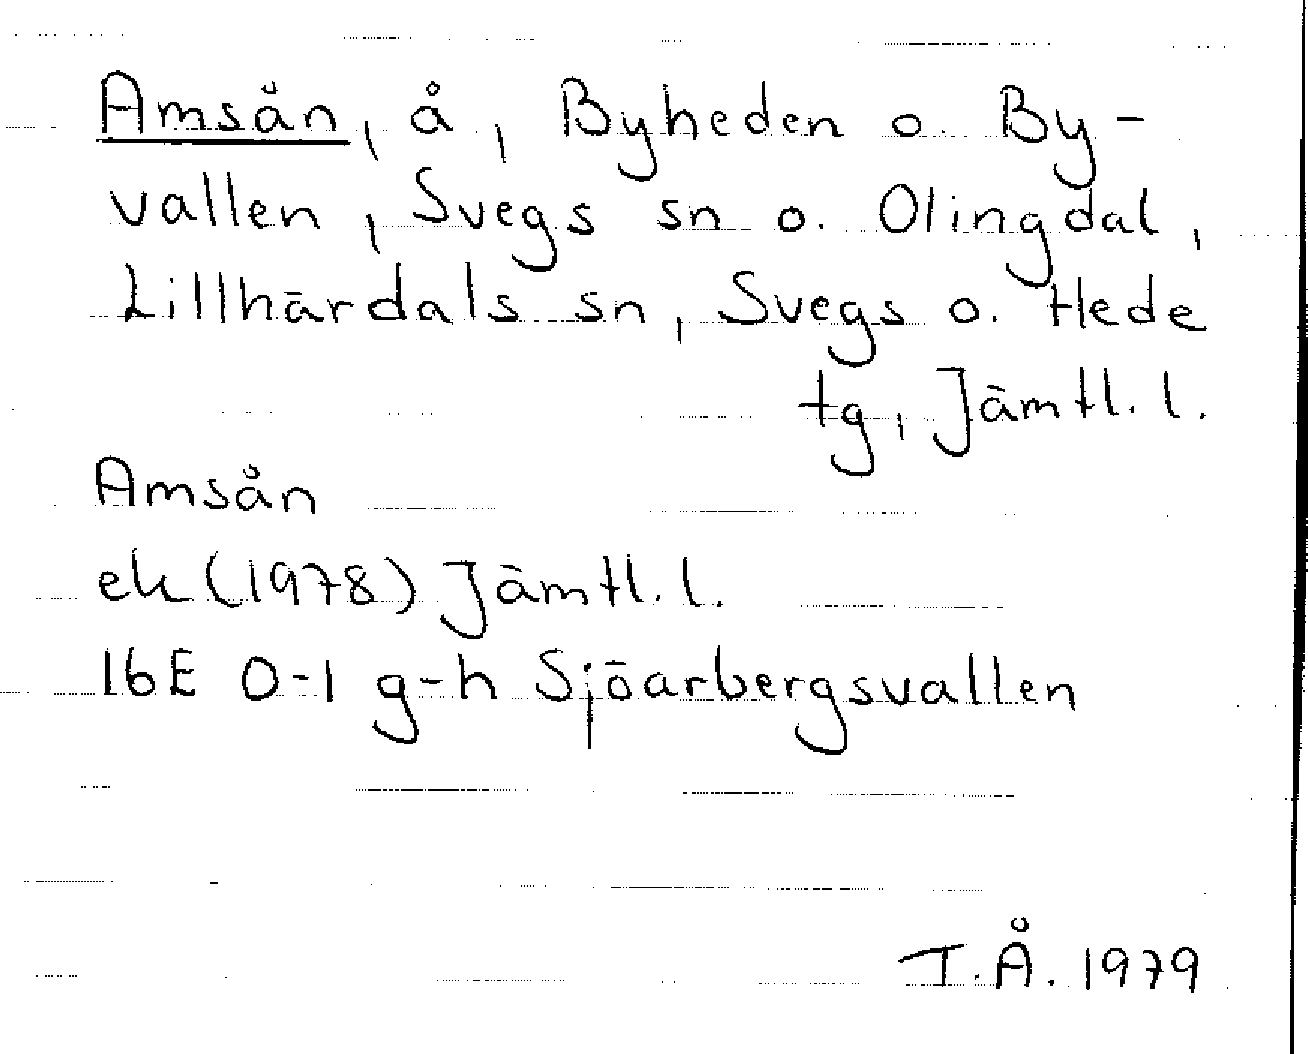 Amsån, å, Byheden o. By-
vallen, Svegs sn o. Olingdal,
Lillhärdals sn, Svegs o. Hede
tg, Jämtl. l.
Amsån
ek (1978) Jämtl. l.
16E 0-1 g-h Sjöarbergsvallen
T.Å. 1979